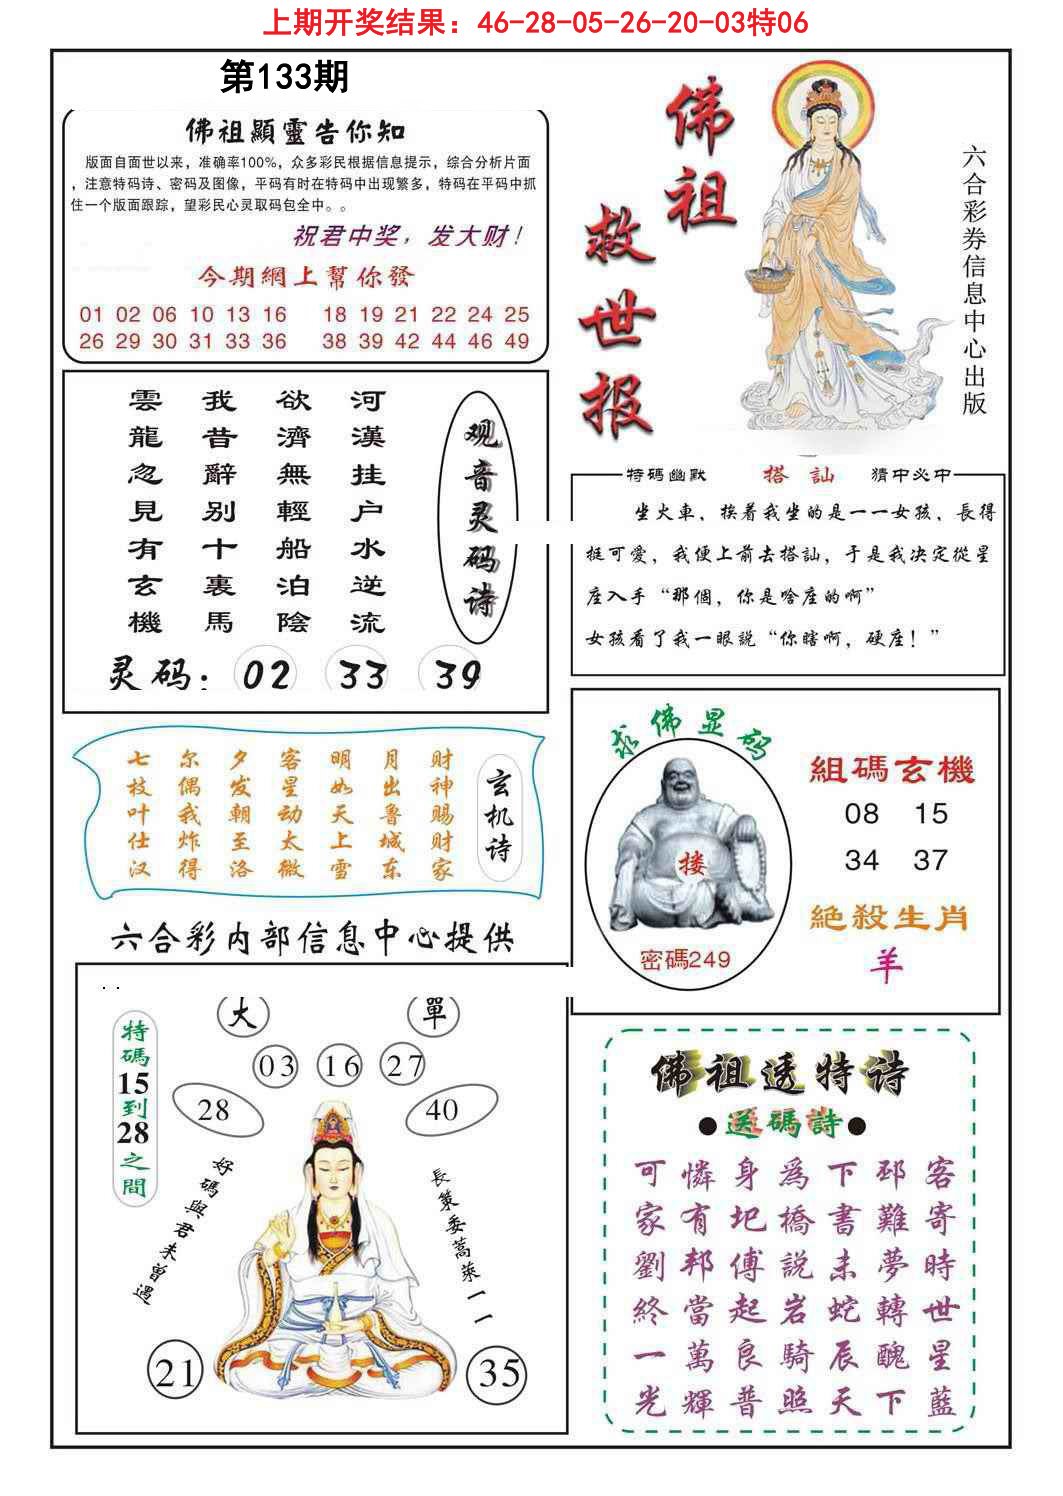 上期开奖结果：46-28-05-26-20-03特06
第133期
佛祖顯靈告你知
版面自面世以来，准确率100%，众多彩民根据信息提示，综合分析片面
，注意特码诗、密码及图像，平码有时在特码中出现繁多，特码在平码中抓
住一个版面跟踪，望彩民心灵取码包全中。。
祝君中奖，发大财！
今期網上幫你發
01 02 06 10 13 16 18 19 21 22 24 25
26 29 30 31 33 36 38 39 42 44 46 49
佛祖
救世报
六合彩券信息中心出版
观音灵码诗
河漢挂户水逆流
欲濟無輕船泊陰
我昔辭别十裏馬
雲龍忽見有玄機
灵码：02 33 39
特碼幽默 搭訕 猜中必中
坐火車，挨着我坐的是一一女孩，長得
挺可愛，我便上前去搭訕，于是我决定從星
座入手“那個，你是啥座的啊”
女孩看了我一眼説“你瞎啊，硬座！”
玄机诗
财神赐财家
月出鲁城东
明如天上雪
客星动太微
夕发朝至洛
尔偶我炸得
七枝叶仕汉
求佛显码
搂
密碼249
組碼玄機
08 15
34 37
絶殺生肖
羊
六合彩内部信息中心提供
. .
大 單
03 16 27
28 40
特碼15到28之間
好碼與君未曾遇
長策委蒿萊一一
21 35
佛祖透特诗
●送碼詩●
可憐身爲下邳客
家有圯橋書難寄
劉邦傅説未夢時
終當起岩蛇轉世
一萬良騎辰醜星
光輝普照天下藍